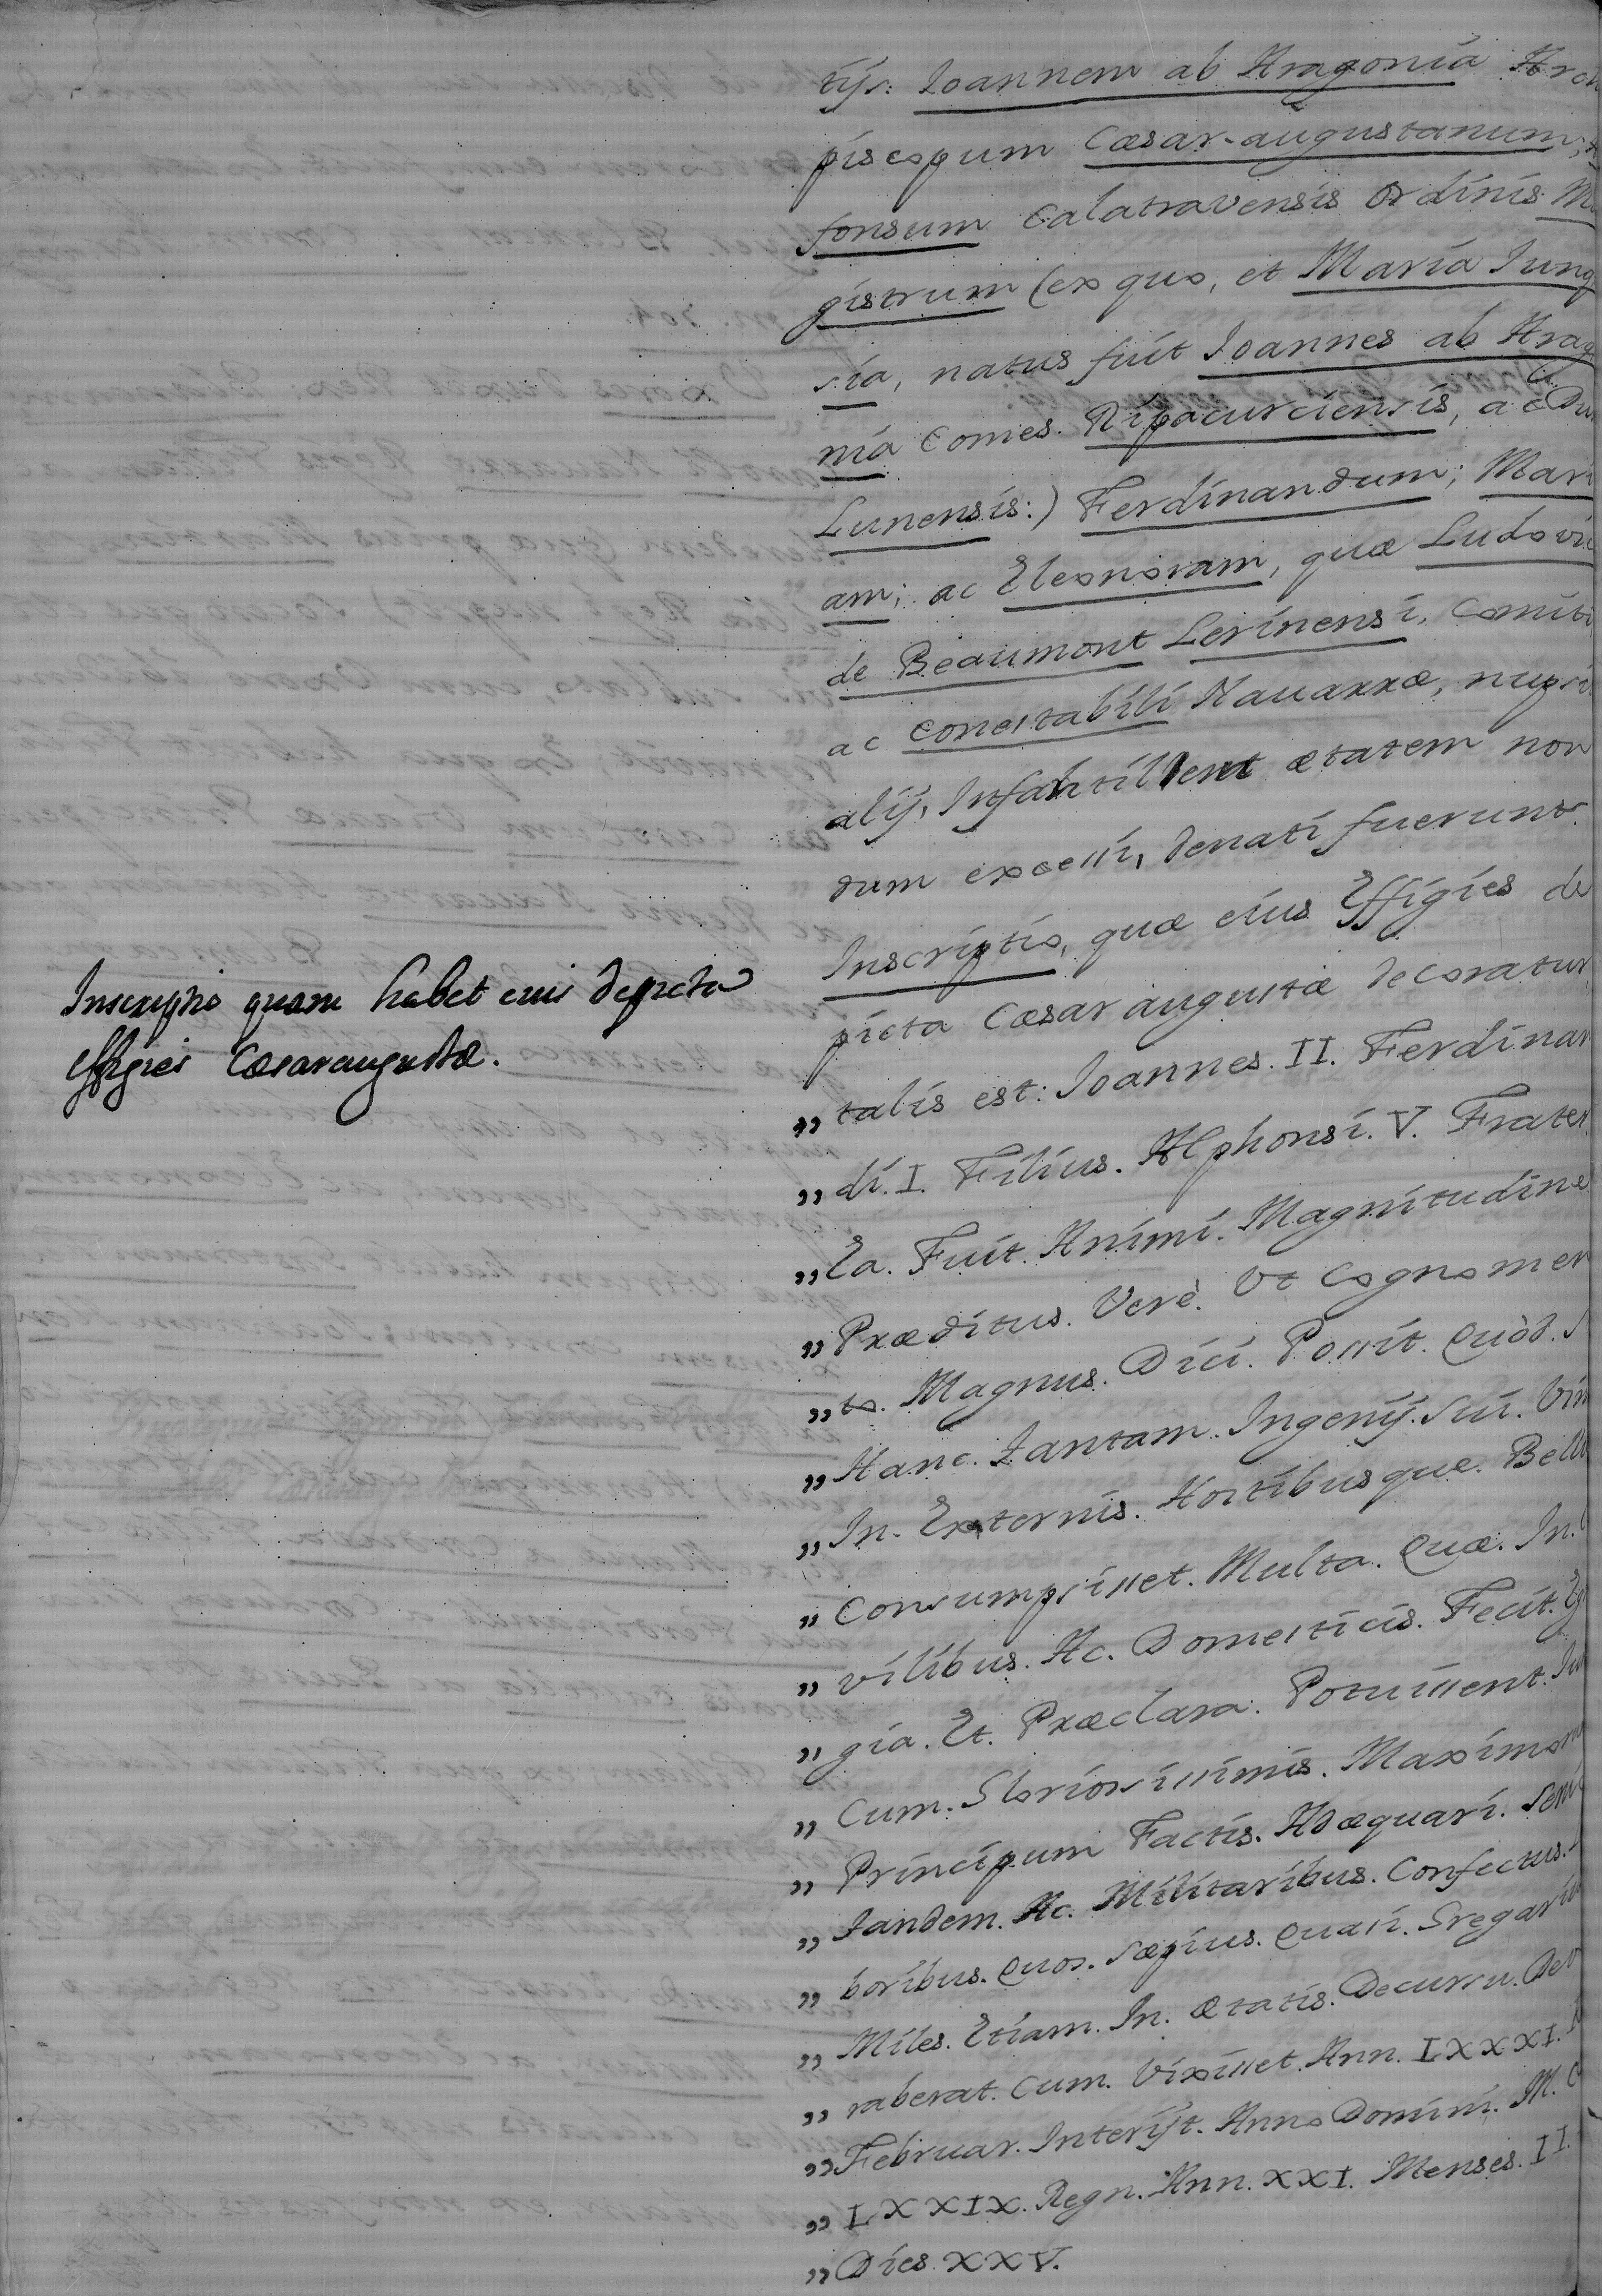 tijs: Ioannem ab Aragonia Arch
piscopum Cæsar-augustanum;
fonsum Calatravensis Ordinis Ma
gistrum (ex quo, et Maria Iunq
sia, natus fuit Ioannes ab Arag
nia Comes Ripacurciensis, ac Du
Lunensis:) Ferdinandum; Mari
am; ac Eleonoram, quæ Ludovic
de Beaumont Lerinensi, Comiti
ac Conestabili Nauarræ, nupsi
alij, Infantilem ætatem non
dum excessi, denati fuerunt.
Inscriptio, quæ eius Effigies de
picta Cæsar augustæ decoratur
Inscriptio quam habet eius depicta
effigies Cæsaraugustæ.
„ talis est: Ioannes. II. Ferdinan
„ di. I. Filius. Alphonsi. V. Frater.
„ Ea. Fuit. Animi. Magnitudine
„ Præditus. Verè. Vt Cognomen
„ to. Magnus. Dici. Possit. Quòd. S
„ Hanc. Tantam. Ingenij. Sui. Vim
„ In. Externis. Hostibusque. Bell
„ Consumpsisset. Multa. Quæ. In. C
„ vilibus. Ac. Domesticis. Fecit. Eg
„ gia. Et. Præclara. Potuissent. Iu
„ Cum. Gloriosissimis. Maximor
„ Principum Factis. Adæquari. Seni
„ Tandem. Ac. Militaribus. Confectus.
„ boribus. Quos. Sæpius. Quasi. Gregariu
„ Miles. Etiam. In. Ætatis. Decursu. De
„ raberat. Cum. Vixisset. Ann. LXXXI.
„ Februar. Interijt. Anno Domini. M. C
„ LXXIX. Regn. Ann. XXI. Menses. II.
„ Dies XXV.